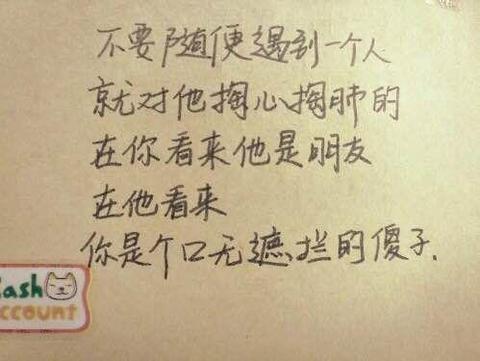 不要随便遇到一个人
就对他掏心掏肺的
在你看来他是朋友
在他看来
你是个口无遮拦的傻子.
ash
ccount